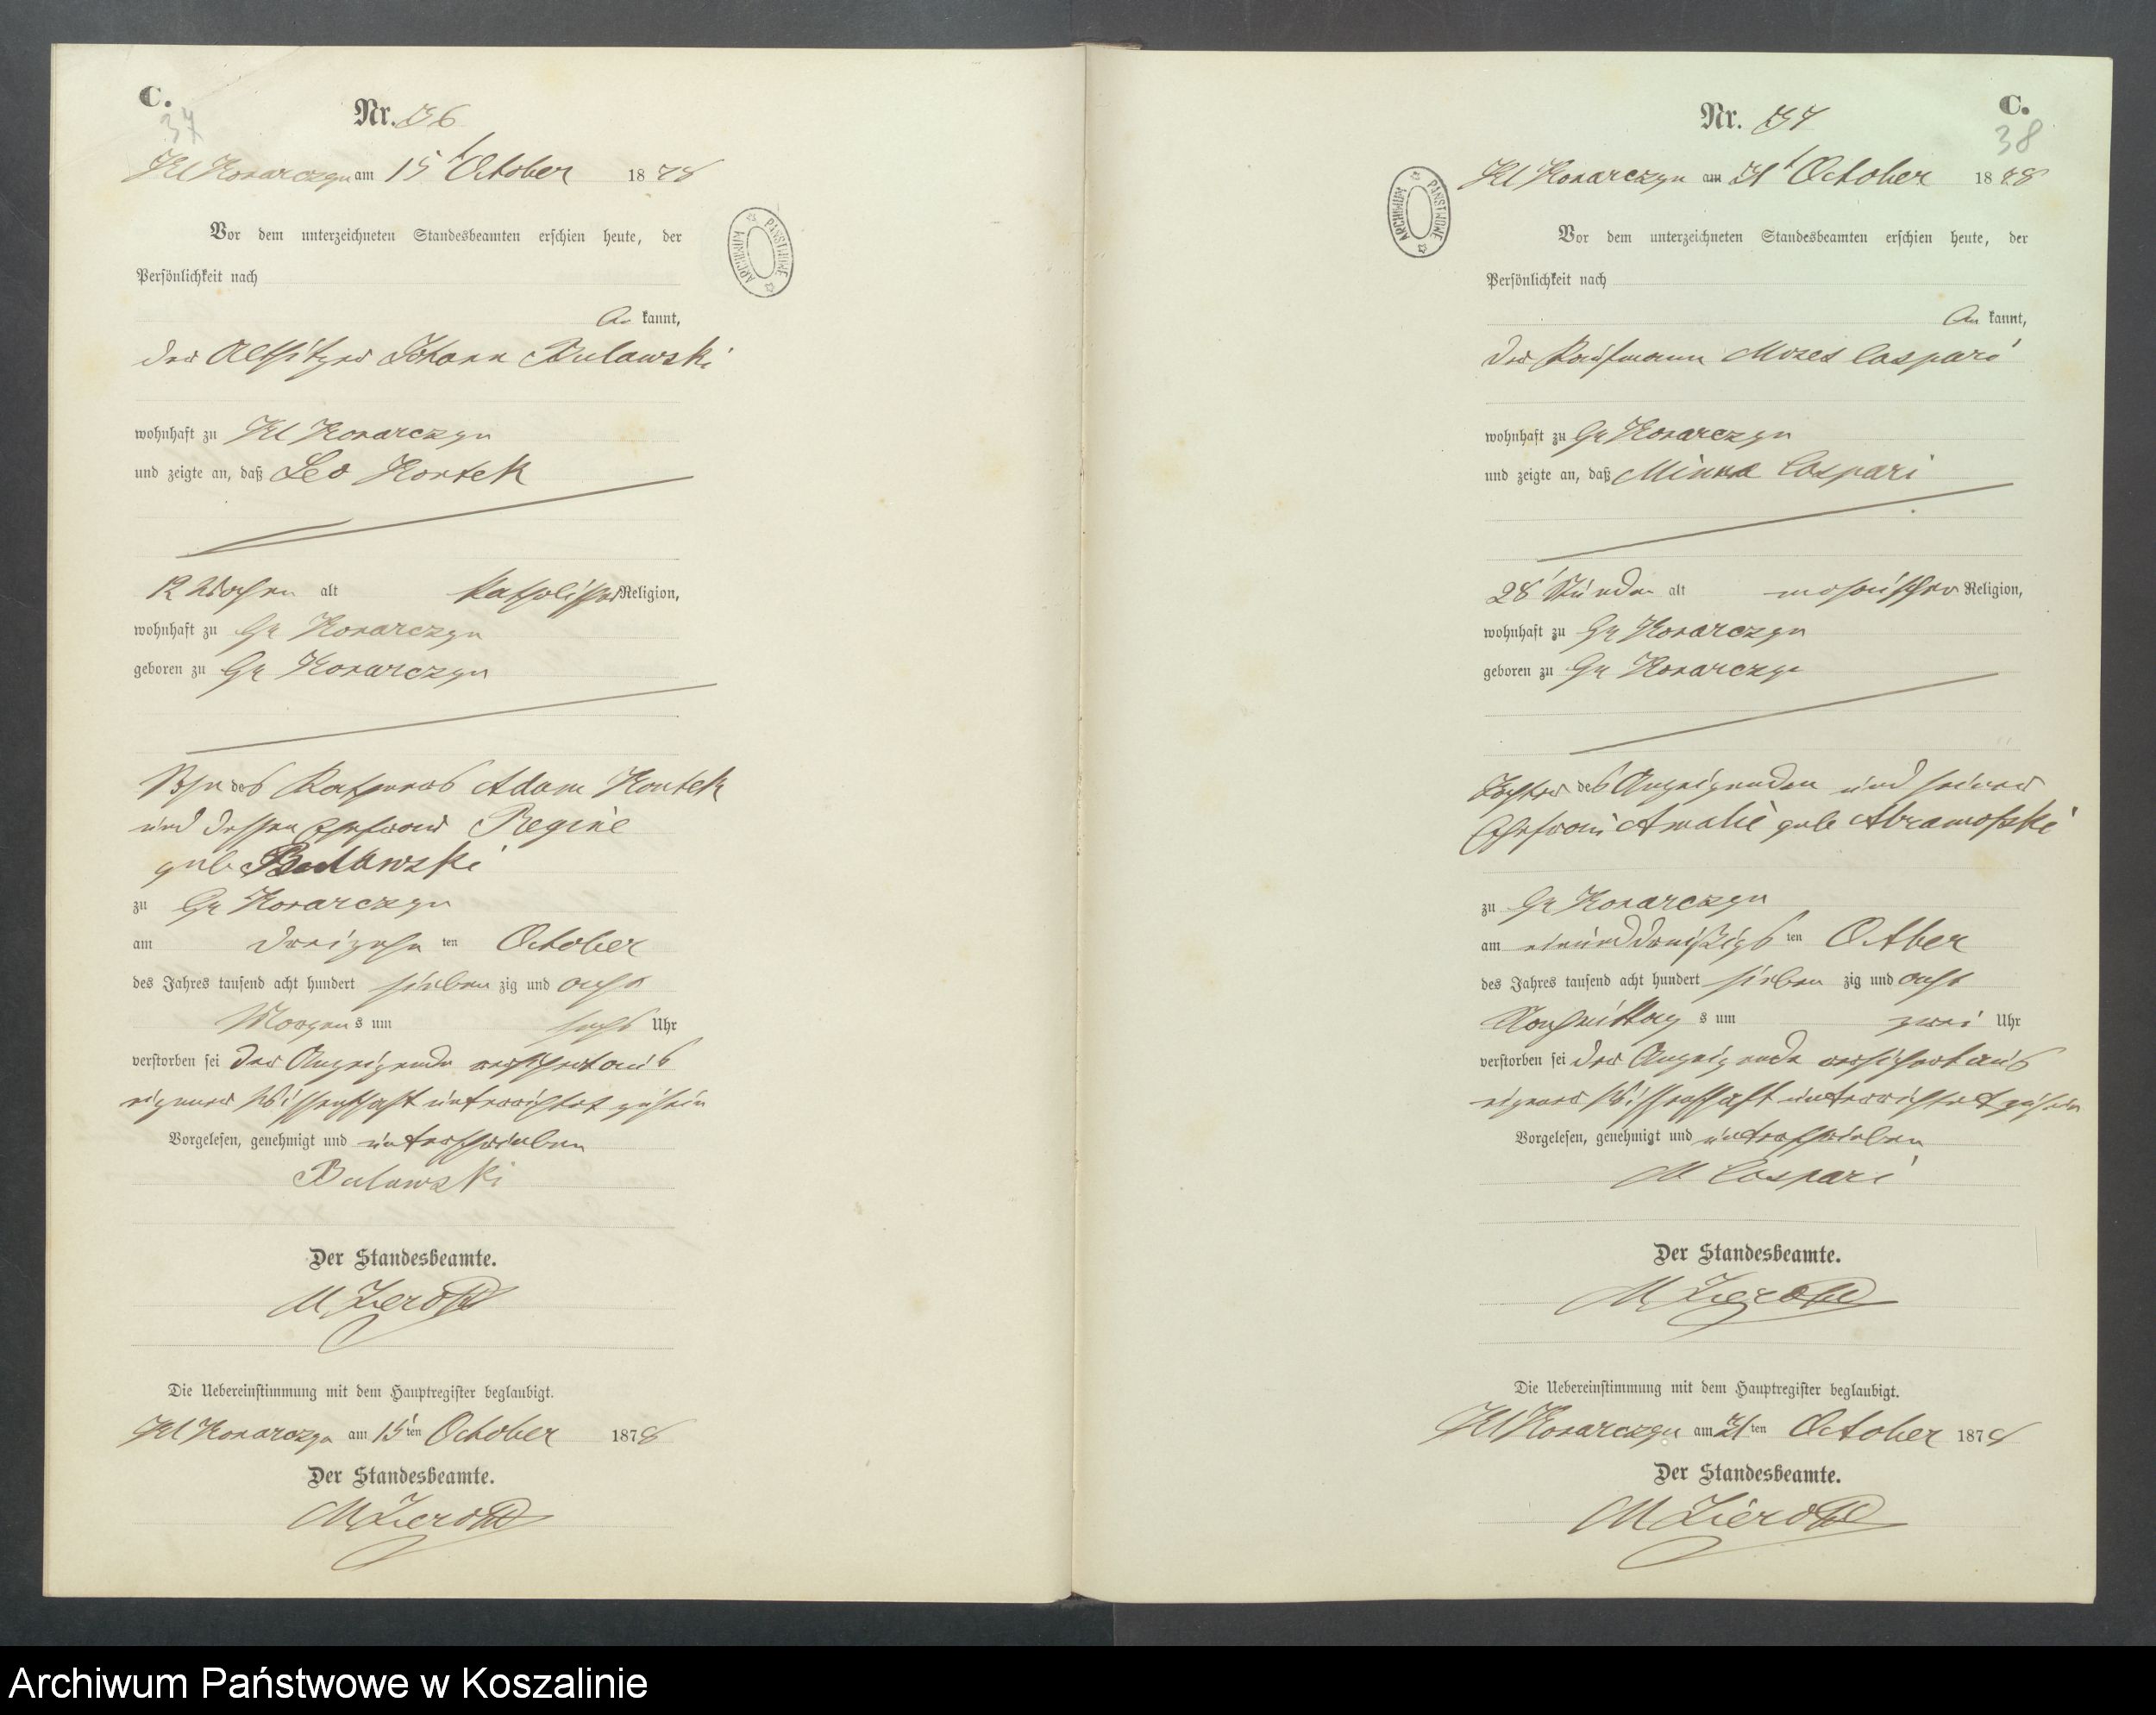 C.
37
Nr. 36
Kl Konarczyn am 15t October 1878
Vor dem unterzeichneten Standesbeamten erschien heute, der
Persönlichkeit nach
be kannt,
der Altsitzer Johann Bulawski
wohnhaft zu Kl Konarczyn
und zeigte an, daß Leo Kontek
12 Wochen alt katholischer Religion,
wohnhaft zu Gr Konarczyn
geboren zu Gr Konarczyn
Sohn des Käthners Adam Kontek
und dessen Ehefrau Regine
geb Bulawski
zu Gr Konarczyn
am dreizehn ten October
des Jahres tausend acht hundert sieben zig und acht
Morgen s um sechs Uhr
verstorben sei der Anzeigende versichert aus
eigener Wissenschaft unterrichtet zu sein
Vorgelesen, genehmigt und unterschrieben
Bulawski
Der Standesbeamte.
Die Uebereinstimmung mit dem Hauptregister beglaubigt.
Kl Konarczyn am 15 ten October 1878
Der Standesbeamte.
ARCHIWUM PAŃSTWOWE
Nr. 37
C.
38
Kl Konarczyn am 31t October 1878
Vor dem unterzeichneten Standesbeamten erschien heute, der
Persönlichkeit nach
be kannt,
der Kaufmann Moses Caspari
wohnhaft zu Gr Konarczyn
und zeigte an, daß Minna Caspari
28 Stunden alt mosaischer Religion,
wohnhaft zu Gr Konarczyn
geboren zu Gr Konarczyn
Tochter des Anzeigenden und seiner
Ehefrau Amalie geb Abramofski
zu Gr Konarczyn
am einunddreißigs ten Octber
des Jahres tausend acht hundert sieben zig und acht
Nachmittag s um zwei Uhr
verstorben sei der Anzeigende versichert aus
eigener Wissenschaft unterrichtet zu sein
Vorgelesen, genehmigt und unterschrieben
M Caspari
Der Standesbeamte.
Die Uebereinstimmung mit dem Hauptregister beglaubigt.
Kl Konarczyn am 31 ten October 1878
Der Standesbeamte.
ARCHIWUM PAŃSTWOWE
Archiwum Państwowe w Koszalinie